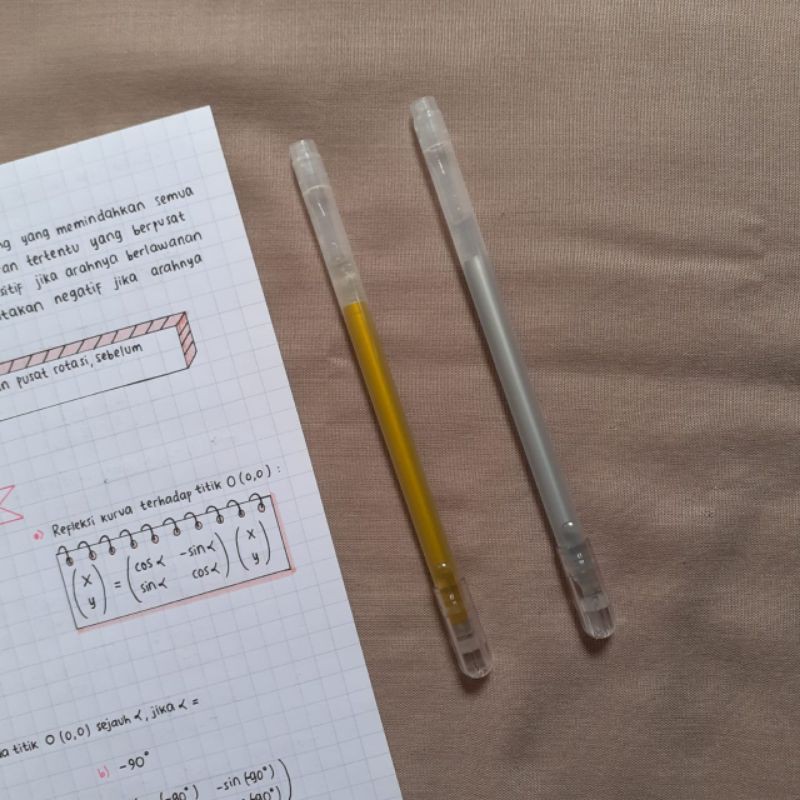 yang memindahkan semua
tertentu yang berpusat
jika arahnya berlawanan
negatif jika arahnya
pusat rotasi, sebelum
a) Refleksi kurva terhadap titik O (0,0) :
(x y) = (cos α -sin α sin α cos α) (x y)
titik O (0,0) sejauh α, jika α =
b) -90°
(-90°) -sin (-90°)